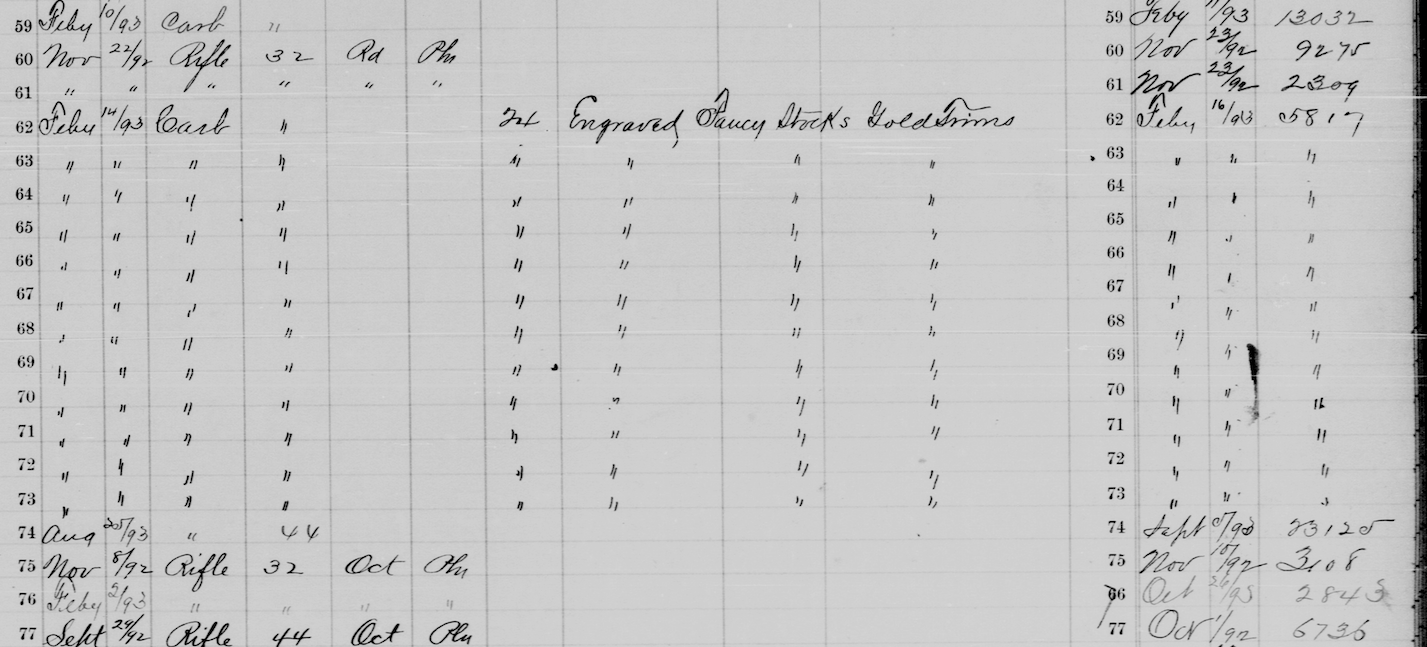 59 Feby 10/93 Carb " 59 Feby 11/93 13032
60 Nov 22/92 Rifle 32 Rd Pln 60 Nov 23/92 9275
61 " " " " " " 61 Nov 23/92 2309
62 Feby 14/93 Carb " 24 Engraved, Fancy Stocks Gold Trims 62 Feby 16/93 5817
63 " " " " " " " " 63 " " "
64 " " " " " " " " 64 " " "
65 " " " " " " " " 65 " " "
66 " " " " " " " " 66 " " "
67 " " " " " " " " 67 " " "
68 " " " " " " " " 68 " " "
69 " " " " " " " " 69 " " "
70 " " " " " " " " 70 " " "
71 " " " " " " " " 71 " " "
72 " " " " " " " " 72 " " "
73 " " " " " " " " 73 " " "
74 Aug /93 " 44 74 Sept /93 23125
75 Nov 8/92 Rifle 32 Oct Pln 75 Nov 10/92 3108
76 Feby 2/93 " " " " Oct 2843
77 Sept 29/92 Rifle 44 Oct Pln 77 Oct 1/92 6736